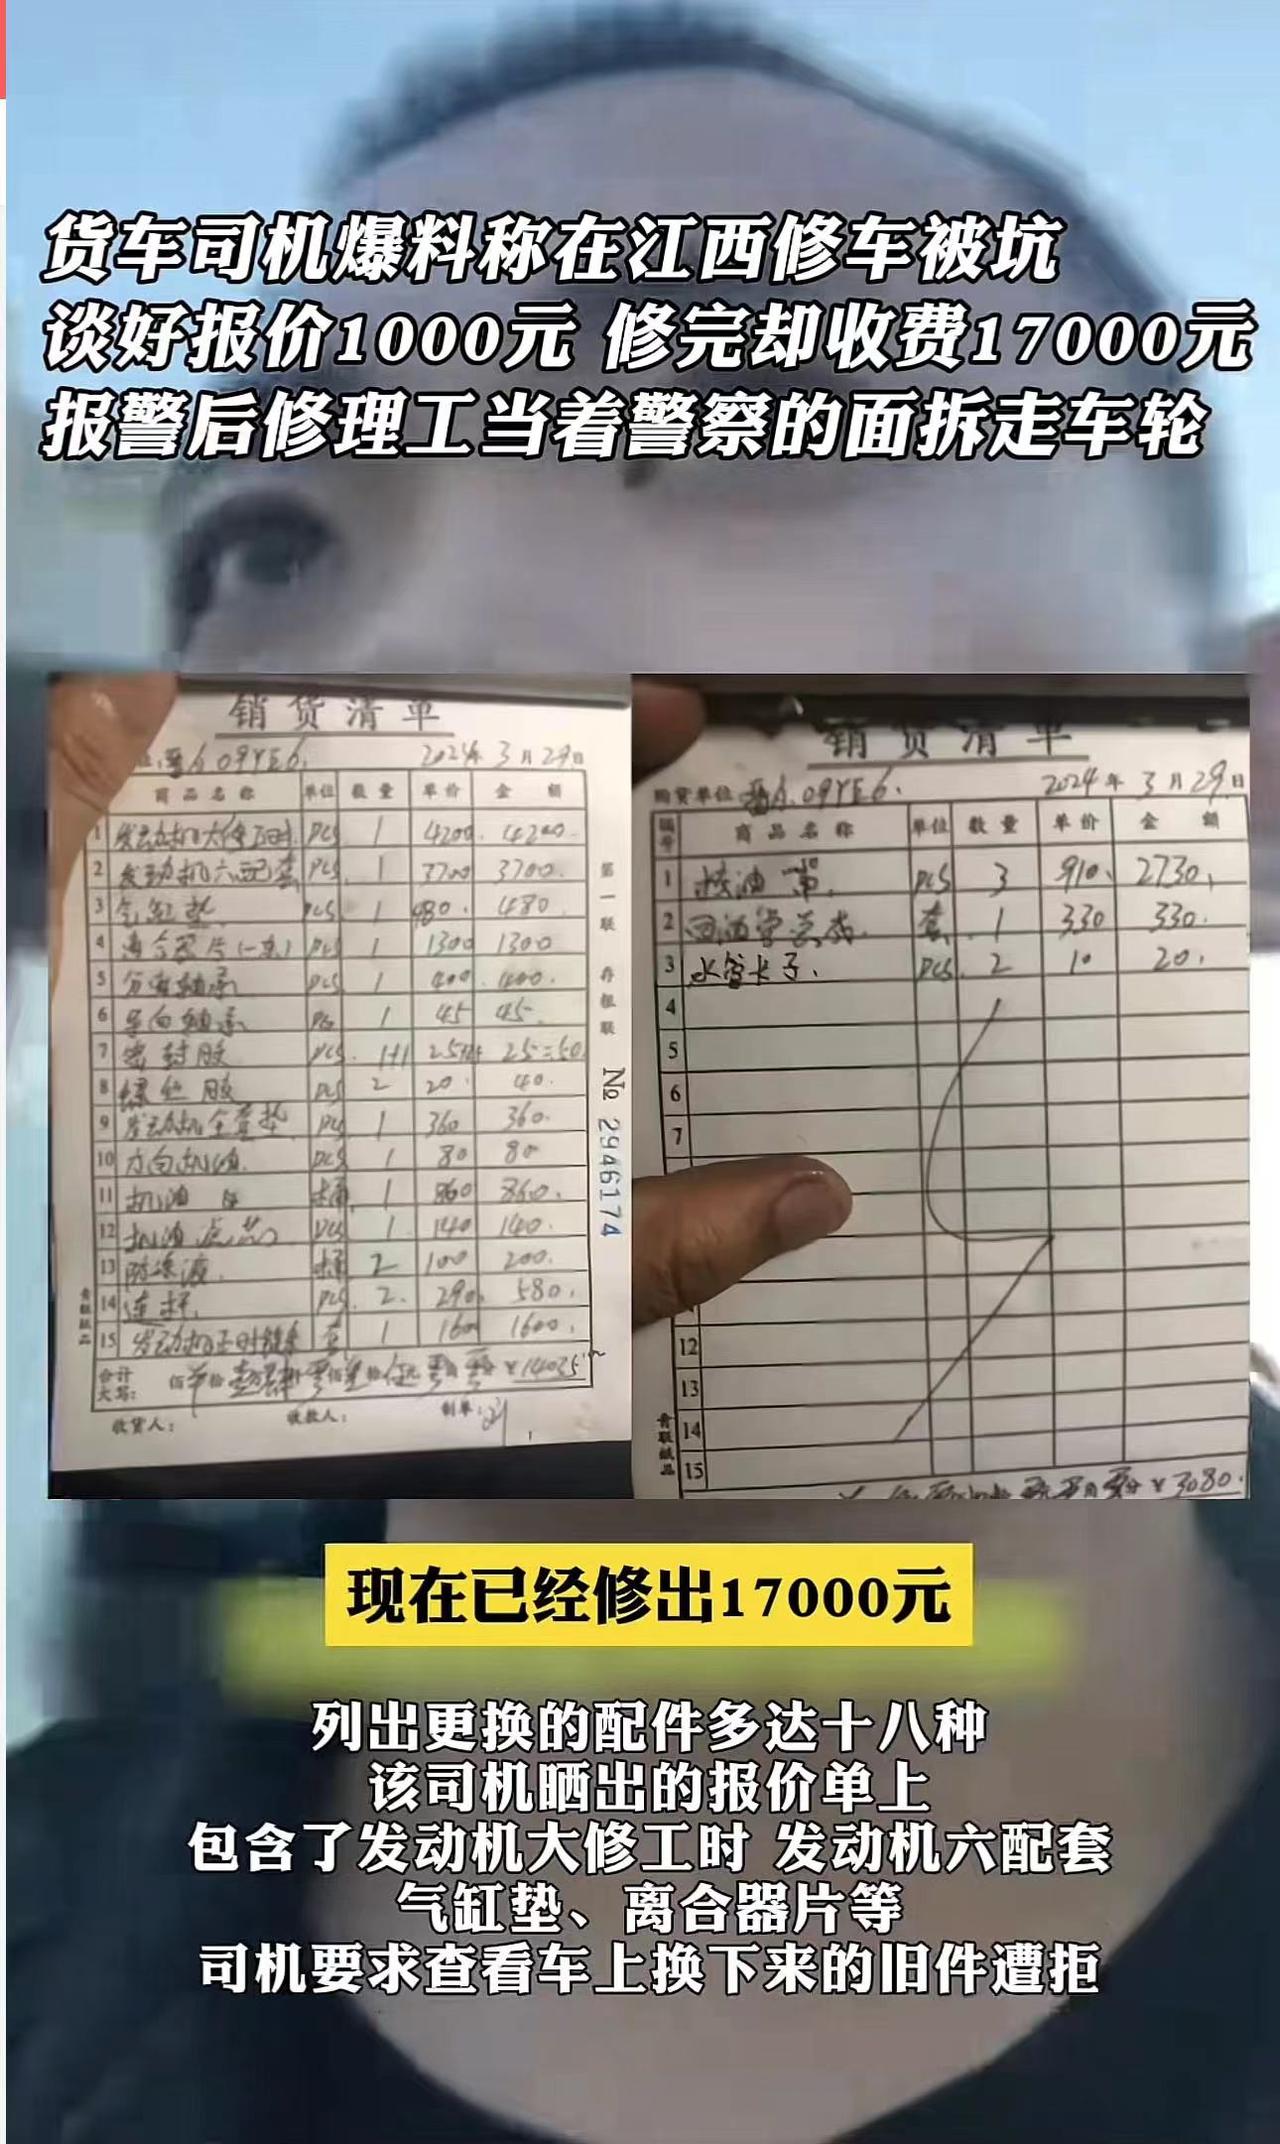 货车司机爆料称在江西修车被坑
谈好报价1000元 修完却收费17000元
报警后修理工当着警察的面拆走车轮
销货清单
晋A.09YE6. 2024年3月29日
商品名称 单位 数量 单价 金额
1 发动机大修工时 PCS 1 4200. 4200.
2 发动机六配套 PCS. 1 3700 3700.
3 气缸垫 PCS 1 480. 480.
4 离合器片(一套) PCS 1 1300 1300
5 分离轴承 PCS 1 400. 400.
6 导向轴承 PCS 1 45 45.
7 密封胶 PCS. 1+1 25+25 25=50.
8 螺丝胶 PCS 2 20. 40.
9 发动机全套垫 PCS 1 360 360.
10 方向机油. PCS 1 80 80
11 机油 桶. 1 860 860.
12 机油滤芯 PCS 1. 140 140.
13 防冻液. 桶 2 100 200.
14 连杆. PCS. 2. 290. 580.
15 发动机正时链条 套 1 1600 1600.
合计大写: ¥14035
收货人: 收款人: 制单:
第一联 存根联
No 2946174
青联纸品
销货清单
购货单位 晋A.09YE6. 2024年3月29日
编号 商品名称 单位 数量 单价 金额
1 PCS 3 910. 2730.
2 回油管总成. 套. 1 330 330.
3 水管卡子. PCS. 2 10 20.
4
5
6
7
12
13
14
15
青联纸品
¥3080.
现在已经修出17000元
列出更换的配件多达十八种
该司机晒出的报价单上
包含了发动机大修工时 发动机六配套
气缸垫、离合器片等
司机要求查看车上换下来的旧件遭拒